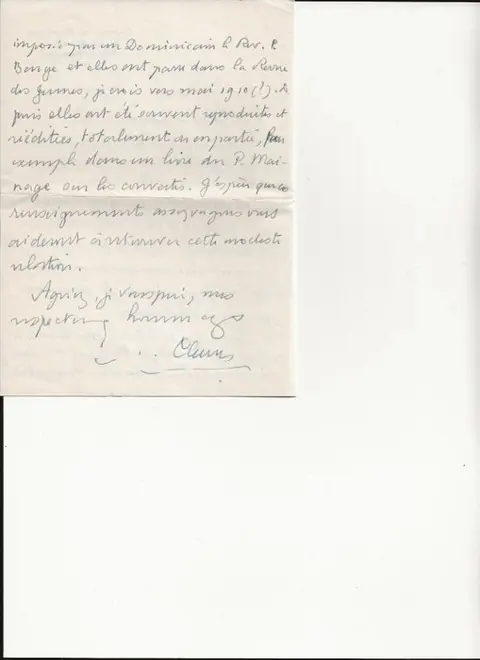 imposé par un Dominicain le Rev. P.
Barge et elles ont paru dans la Revue
des Jeunes, je crois vers mai 1910 (?). De
puis elles ont été souvent reproduites et
rééditées, totalement ou en partie, par
exemple dans un livre du P. Mai-
nage sur les convertis. J'espère que ces
renseignements assez vagues vous
aideront à retrouver cette modeste
relation.
Agréez, je vous prie, mes
respectueux hommages